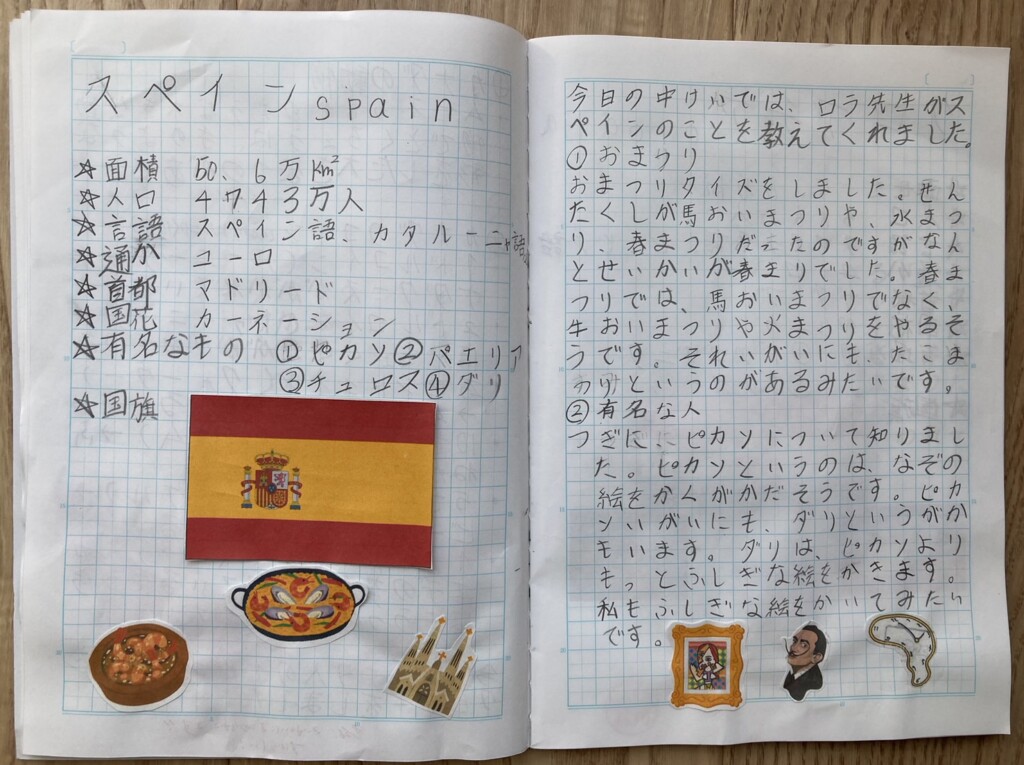 スペインspain
☆面積 50.6万km²
☆人口 4743万人
☆言語 スペイン語、カタルーニャ語
☆通か ユーロ
☆首都 マドリード
☆国花 カーネーション
☆有名なもの ①ピカソ②パエリア
③チュロス④ダリ
☆国旗
今日の中けいでは、ロラ先生がス
ペインのことを教えてくれました。
①おまつり
おまつりクイズをしました。せん
たくしが馬おいまつりや、水まつ
り、春まつりだったのですがなん
とせいかいが春まりでした。春ま
つりでは、馬おいまつりでなく、
牛おいまつりや火まつりをやるそ
うです。それいがいにも、たこま
つりというのがあるみたいです。
②有名な人
つぎに、ピカソについて知りまし
た。ピカソというのは、なぞの
絵をかくがかだそうです。ピカ
ソいがいにも、ダリというがか
もいます。ダリは、ピカソより
もっとふしぎな絵をかきます。
私もふしぎな絵をかいてみたい
です。